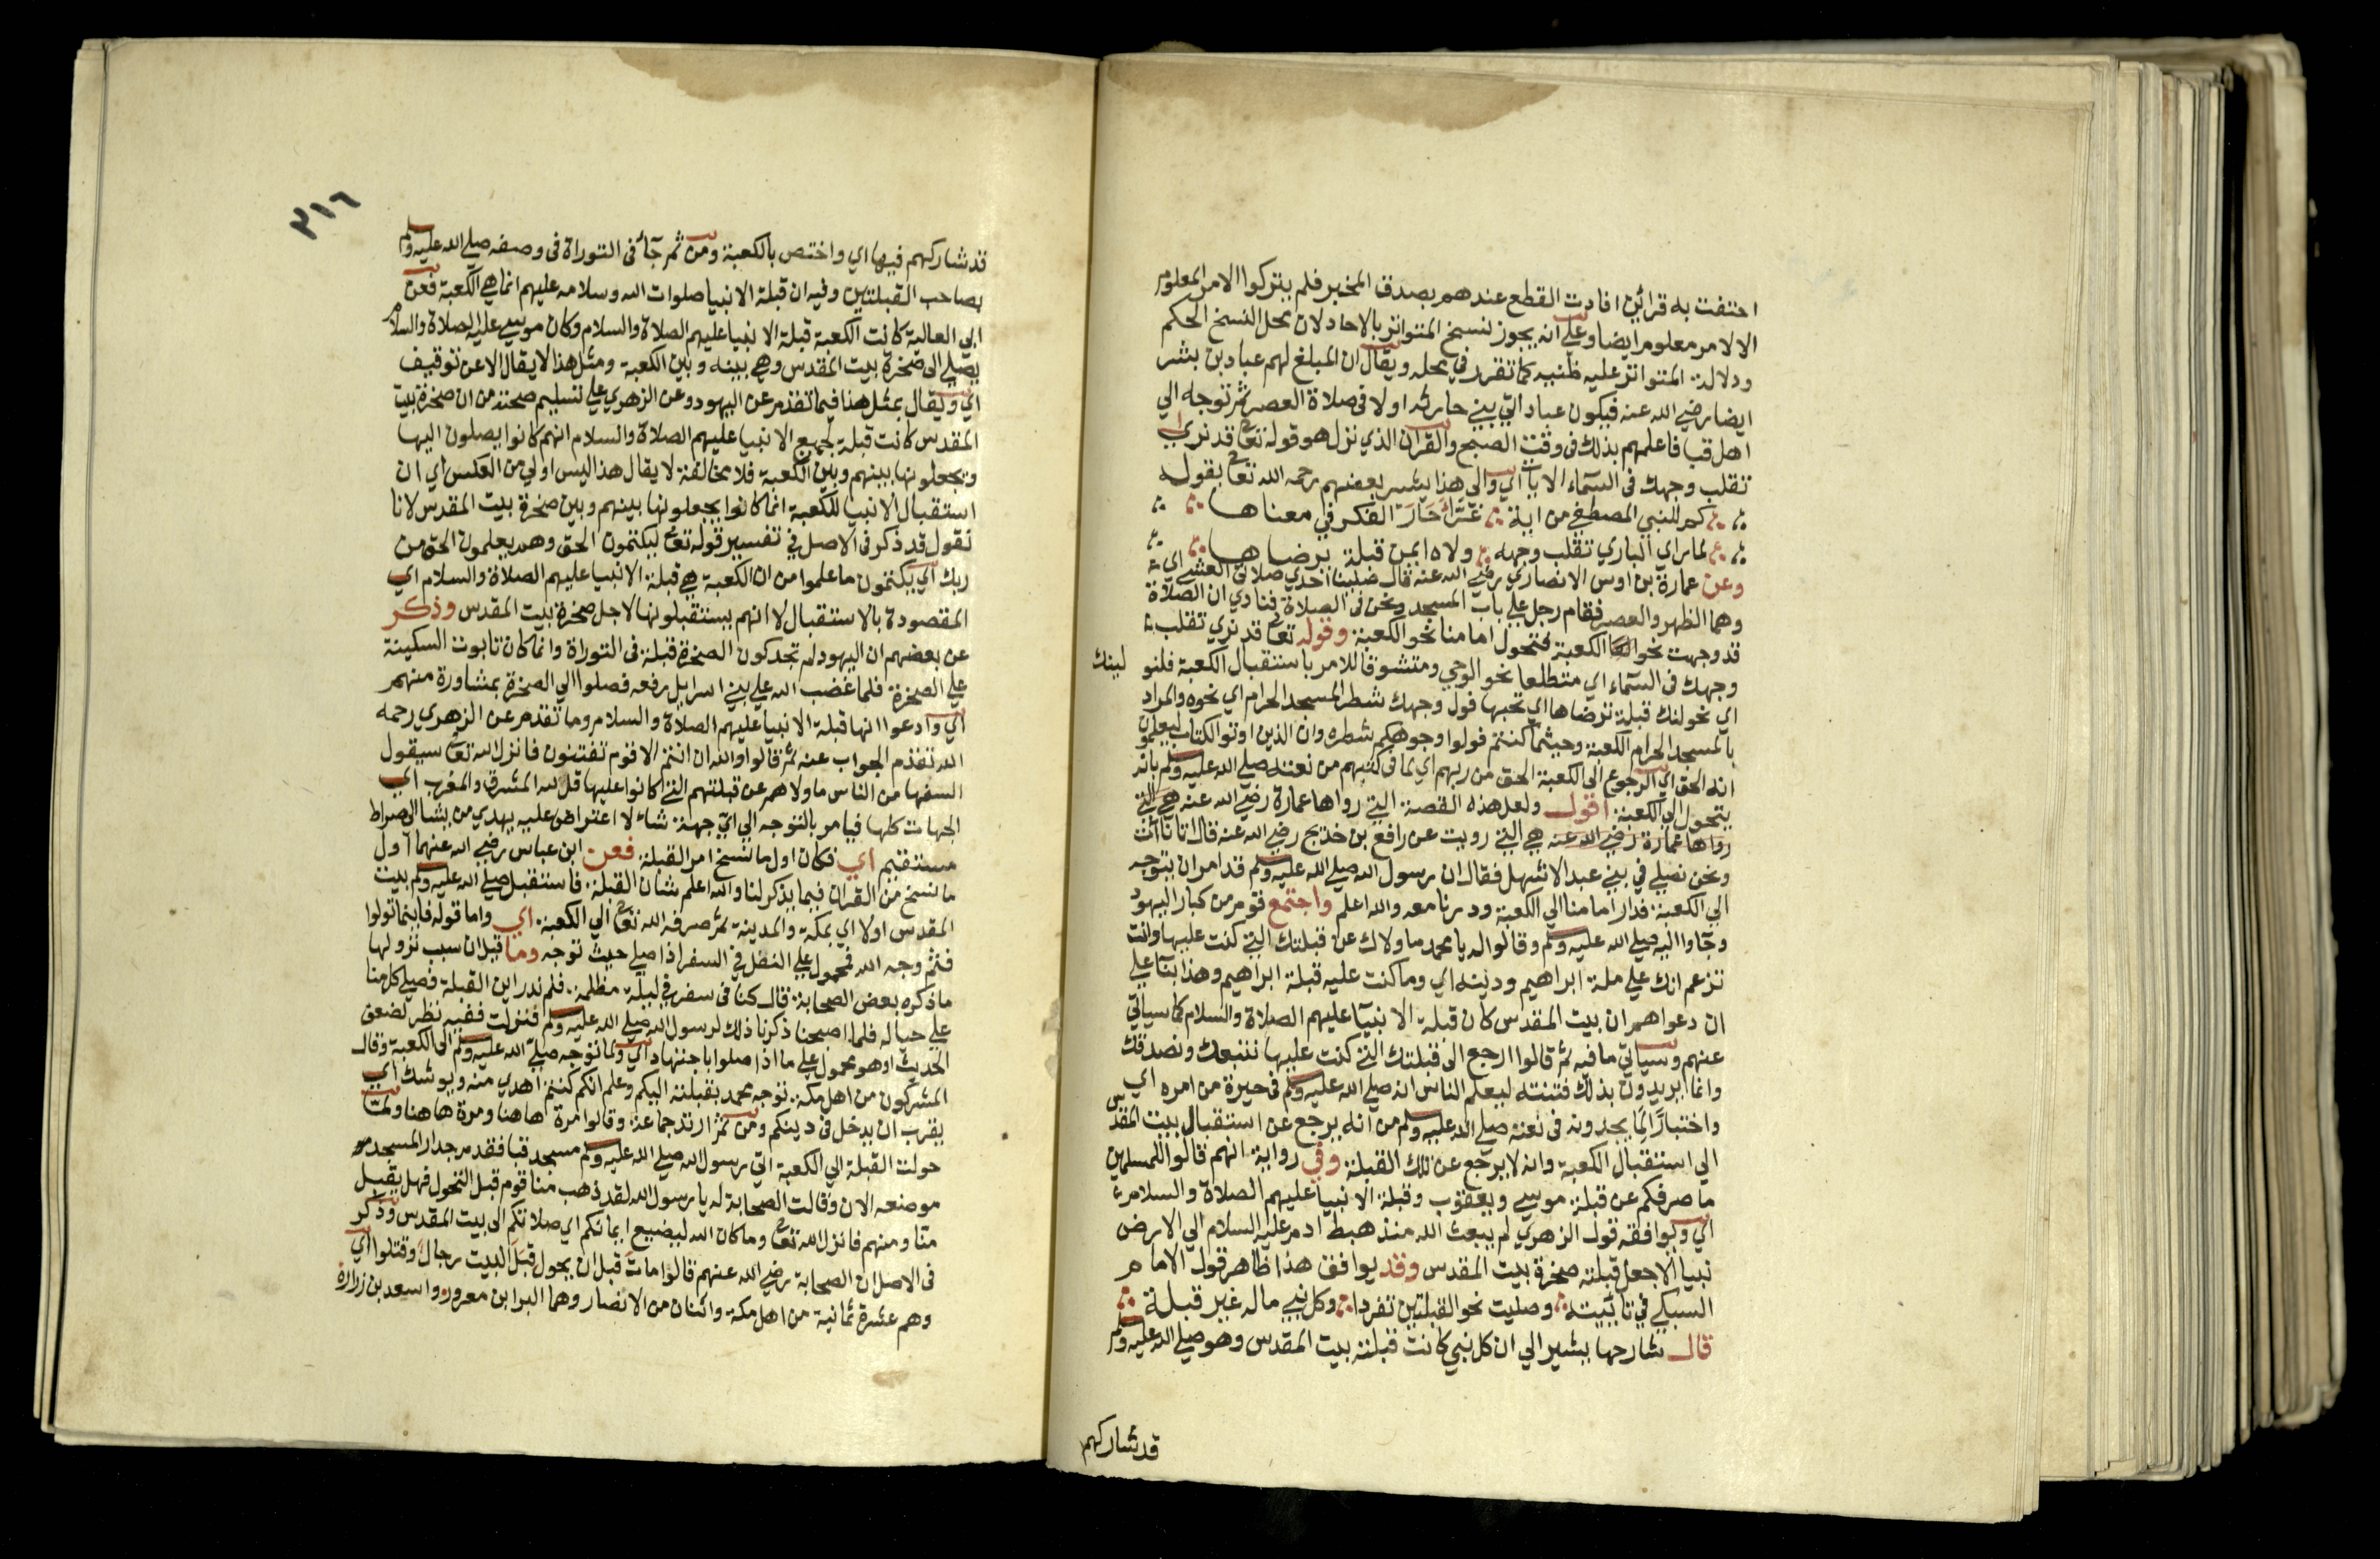 احتفت به قرائن افادت القطع عندهم بصدق المخبر فلم يتركوا الامر المعلوم
الا لامر معلوم ايضا وعلي انه يجوز نسخ المتواتر بالاحاد لان محل النسخ الحكم
ودلالة المتواتر عليه ظنيه كما تقرر في محله ويقال ان المبلغ لهم عباد بن بشر
ايضا رضي الله عنه فيكون عباد اتي بني حارثه اولا في صلاة العصر ثم توجه الي
اهل قبا فاعلمهم بذلك في وقت الصبح والقران الذي نزل هو قوله تعالى قد نري
تقلب وجهك في السماء الايات اي والي هذا يشير بعضهم رحمه الله تعالى بقوله
كم للنبي المصطفي من اية غراء حار الفكر في معناها
لما راي الباري تقلب وجهه ولاه ايمن قبلة يرضاها
وعن عمارة بن اوس الانصاري رضي الله عنه قال صلينا احدي صلاتي العشي اي
وهما الظهر والعصر فقام رجل علي باب المسجد ونحن في الصلاة فنادي ان الصلاة
قد وجهت نحو الكعبة فتحول امامنا نحو الكعبة وقوله تعالى قد نري تقلب
وجهك في السماء اي متطلعا نحو الوحي ومتشوقا للامر باستقبال الكعبة فلنو لينك
اي نحولنك قبلة ترضاها اي تحبها فول وجهك شطر المسجد الحرام اي نحوه والمراد
بالمسجد الحرام الكعبة وحيثما كنتم فولوا وجوهكم شطره وان الذين اوتوا الكتاب ليعلمون
انه الحق اي الرجوع الي الكعبة الحق من ربهم اي لما في كتبهم من نعته صلي الله عليه وسلم بانه
يتحول الي الكعبة اقول ولعل هذه القصة التي رواها عمارة رضي الله عنه هي التي
رواها عمارة رضي الله عنه هي التي رويت عن رافع بن خديج رضي الله عنه قال اتانا آت
ونحن نصلي في بني عبد الاشهل فقال ان رسول الله صلي الله عليه وسلم قد امر ان يتوجه
الي الكعبة فدار امامنا الي الكعبة ودرنا معه والله اعلم واجتمع قوم من كبار اليهود
وجاوا اليه صلي الله عليه وسلم وقالوا له يا محمد ما ولاك عن قبلتك التي كنت عليها وانت
تزعم انك علي ملة ابراهيم ودينه اي وما كنت عليه قبلة ابراهيم وهذا بناء علي
ان دعواهم ان بيت المقدس كان قبلة الانبياء عليهم الصلاة والسلام كما سياتي
عنهم وسياتي ما فيه ثم قالوا ارجع الي قبلتك التي كنت عليها نتبعك ونصدقك
وانما يريدون بذلك فتنته ليعلم الناس انه صلي الله عليه وسلم في حيرة من امره اي
واختبارا لما يجدونه في نعته صلي الله عليه وسلم من انه يرجع عن استقبال بيت المقدس
الي استقبال الكعبة وانه لا يرجع عن تلك القبلة وفي رواية انهم قالوا للمسلمين
ما صرفكم عن قبلة موسي ويعقوب وقبلة الانبيا عليهم الصلاة والسلام
اي ويوافقه قول الزهري لم يبعث الله منذ هبط ادم عليه السلام الي الارض
نبيا الا جعل قبلته صخرة بيت المقدس وقد يوافق هذا ظاهر قول الامام
السبكي في تائيته وصليت نحو القبلتين تفردا وكل نبي ماله غير قبلة
قال شارحها يشير الي ان كل نبي كانت قبلته بيت المقدس وهو صلي الله عليه وسلم
قد شاركهم
٣١٦
قد شاركهم فيها اي واختص بالكعبة ومن ثم جآء في التوراة في وصفه صلي الله عليه وسلم
بصاحب القبلتين وفيه ان قبلة الانبيا صلوات الله وسلامه عليهم انما هي الكعبة فعن
ابي العالية كانت الكعبة قبلة الانبيا عليهم الصلاة والسلام وكان موسي عليه الصلاة والسلام
يصلي الي صخرة بيت المقدس وهي بينه وبين الكعبة ومثل هذا لا يقال الا عن توقيف
اي ويقال بمثل هذا فيما تقدم عن اليهود وعن الزهري علي تسليم صحته من ان صخرة بيت
المقدس كانت قبلة لجميع الانبيا عليهم الصلاة والسلام انهم كانوا يصلون اليها
ويجعلونها بينهم وبين الكعبة فلا مخالفة لا يقال هذا ليس اولي من العكس اي ان
استقبال الانبيا للكعبة انما كانوا يجعلونها بينهم وبين صخرة بيت المقدس لانا
نقول قد ذكر في الاصل في تفسير قوله تعالى ليكتمون الحق وهم يعلمون الحق من
ربك اي يكتمون ما علموا من ان الكعبة هي قبلة الانبيا عليهم الصلاة والسلام اي
المقصودة بالاستقبال لا انهم يستقبلونها لاجل صخرة بيت المقدس وذكر
عن بعضهم ان اليهود لم تجد كون الصخرة قبلة في التوراة وانما كان تابوت السكينة
علي الصخرة فلما غضب الله علي بني اسرايل رفعه فصلوا الي الصخرة بمشاورة منهم
اي وادعوا انها قبلة الانبيا عليهم الصلاة والسلام وما تقدم عن الزهري رحمه
الله تقدم الجواب عنه ثم قالوا والله ان انتم الا قوم تفتنون فانزل الله تعالى سيقول
السفها من الناس ما ولاهم عن قبلتهم التي كانوا عليها قل لله المشرق والمغرب اي
الجهات كلها فيامر بالتوجه الي اي جهة شاء لا اعتراض عليه يهدي من يشا الي صراط
مستقيم اي فكان اول ما نسخ امر القبلة فعن ابن عباس رضي الله عنهما اول
ما نسخ من القران فيما يذكر لنا والله اعلم شان القبلة فاستقبل صلي الله عليه وسلم بيت
المقدس اولا اي بمكة والمدينة ثم صرفه الله تعالى الي الكعبة اي واما قوله فاينما تولوا
فثم وجه الله فمحمول علي النفل في السفر اذا صلي حيث توجه وما قيل ان سبب نزولها
ما ذكره بعض الصحابة قال كنا في سفر في ليلة مظلمة فلم ندر اين القبلة فصلي كل منا
علي حياله فلما اصبحنا ذكرنا ذلك لرسول الله صلي الله عليه وسلم فنزلت ففيه نظر لضعف
الحديث او هو محمول علي ما اذا صلوا باجتهاد اي ولما توجه صلي الله عليه وسلم الي الكعبة وقال
المشركون من اهل مكة توجه محمد بقبلته اليكم وعلم انكم كنتم اهدي منه ويوشك اي
يقرب ان يدخل في دينكم ومن ثم ارتد جماعة وقالوا مرة هاهنا ومرة هاهنا ولما
حولت القبلة الي الكعبة اتي رسول الله صلي الله عليه وسلم مسجد قبا فقدم جدار المسجد
موضعه الان وقالت الصحابة له يا رسول الله لقد ذهب منا قوم قبل التحول فهل يقبل
منا ومنهم فانزل الله تعالى وما كان الله ليضيع ايمانكم اي صلاتكم الي بيت المقدس وذكر
في الاصل ان الصحابة رضي الله عنهم قالوا مات قبل ان يحول قبل البيت رجال وقتلوا اي
وهم عشرة ثمانية من اهل مكة واثنان من الانصار وهما البرا بن معرور واسعد بن زرارة